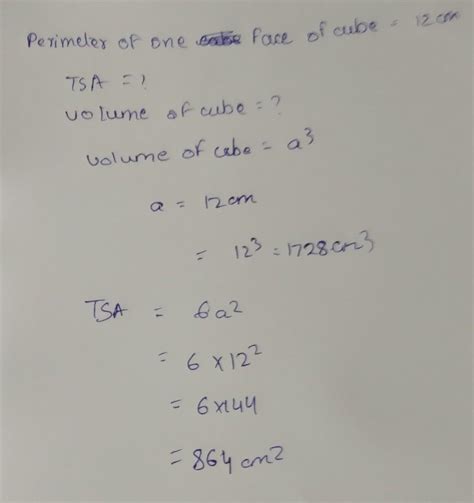 Perimeter of one face of cube = 12cm
TSA = ?
volume of cube = ?
volume of cube = a³
a = 12cm
= 12³ = 1728cm³
TSA = 6a²
= 6 × 12²
= 6×144
= 864 cm²